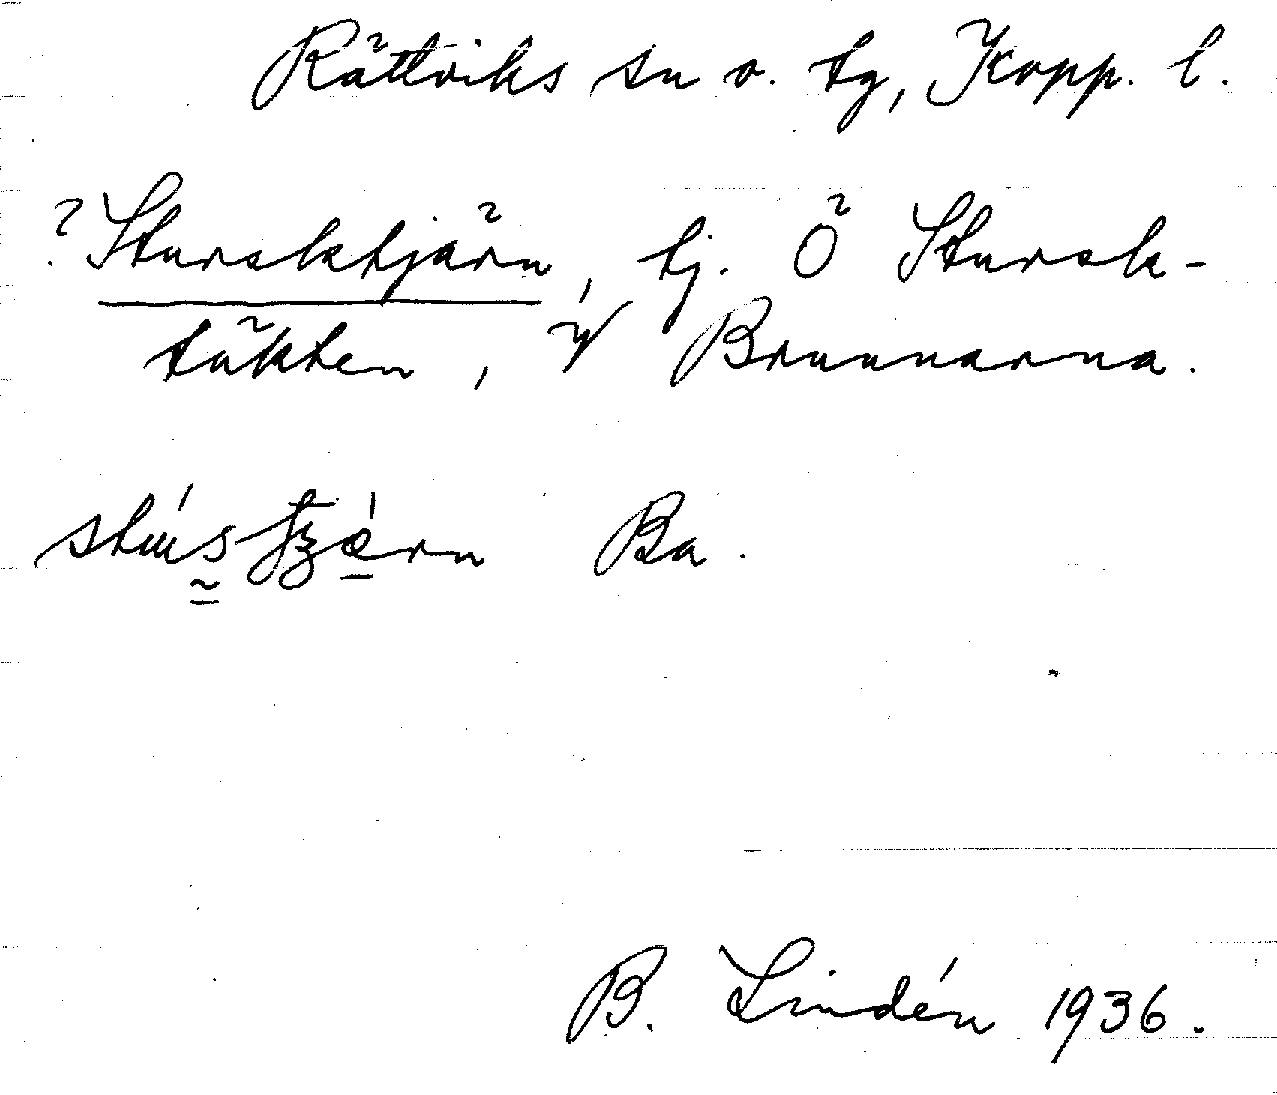 Rättviks sn o. tg, Kopp. l.
? Stursktjärn, tj. Ö Stursk-
täkten, V Brunnarna.
Ba.
B. Lindén 1936.